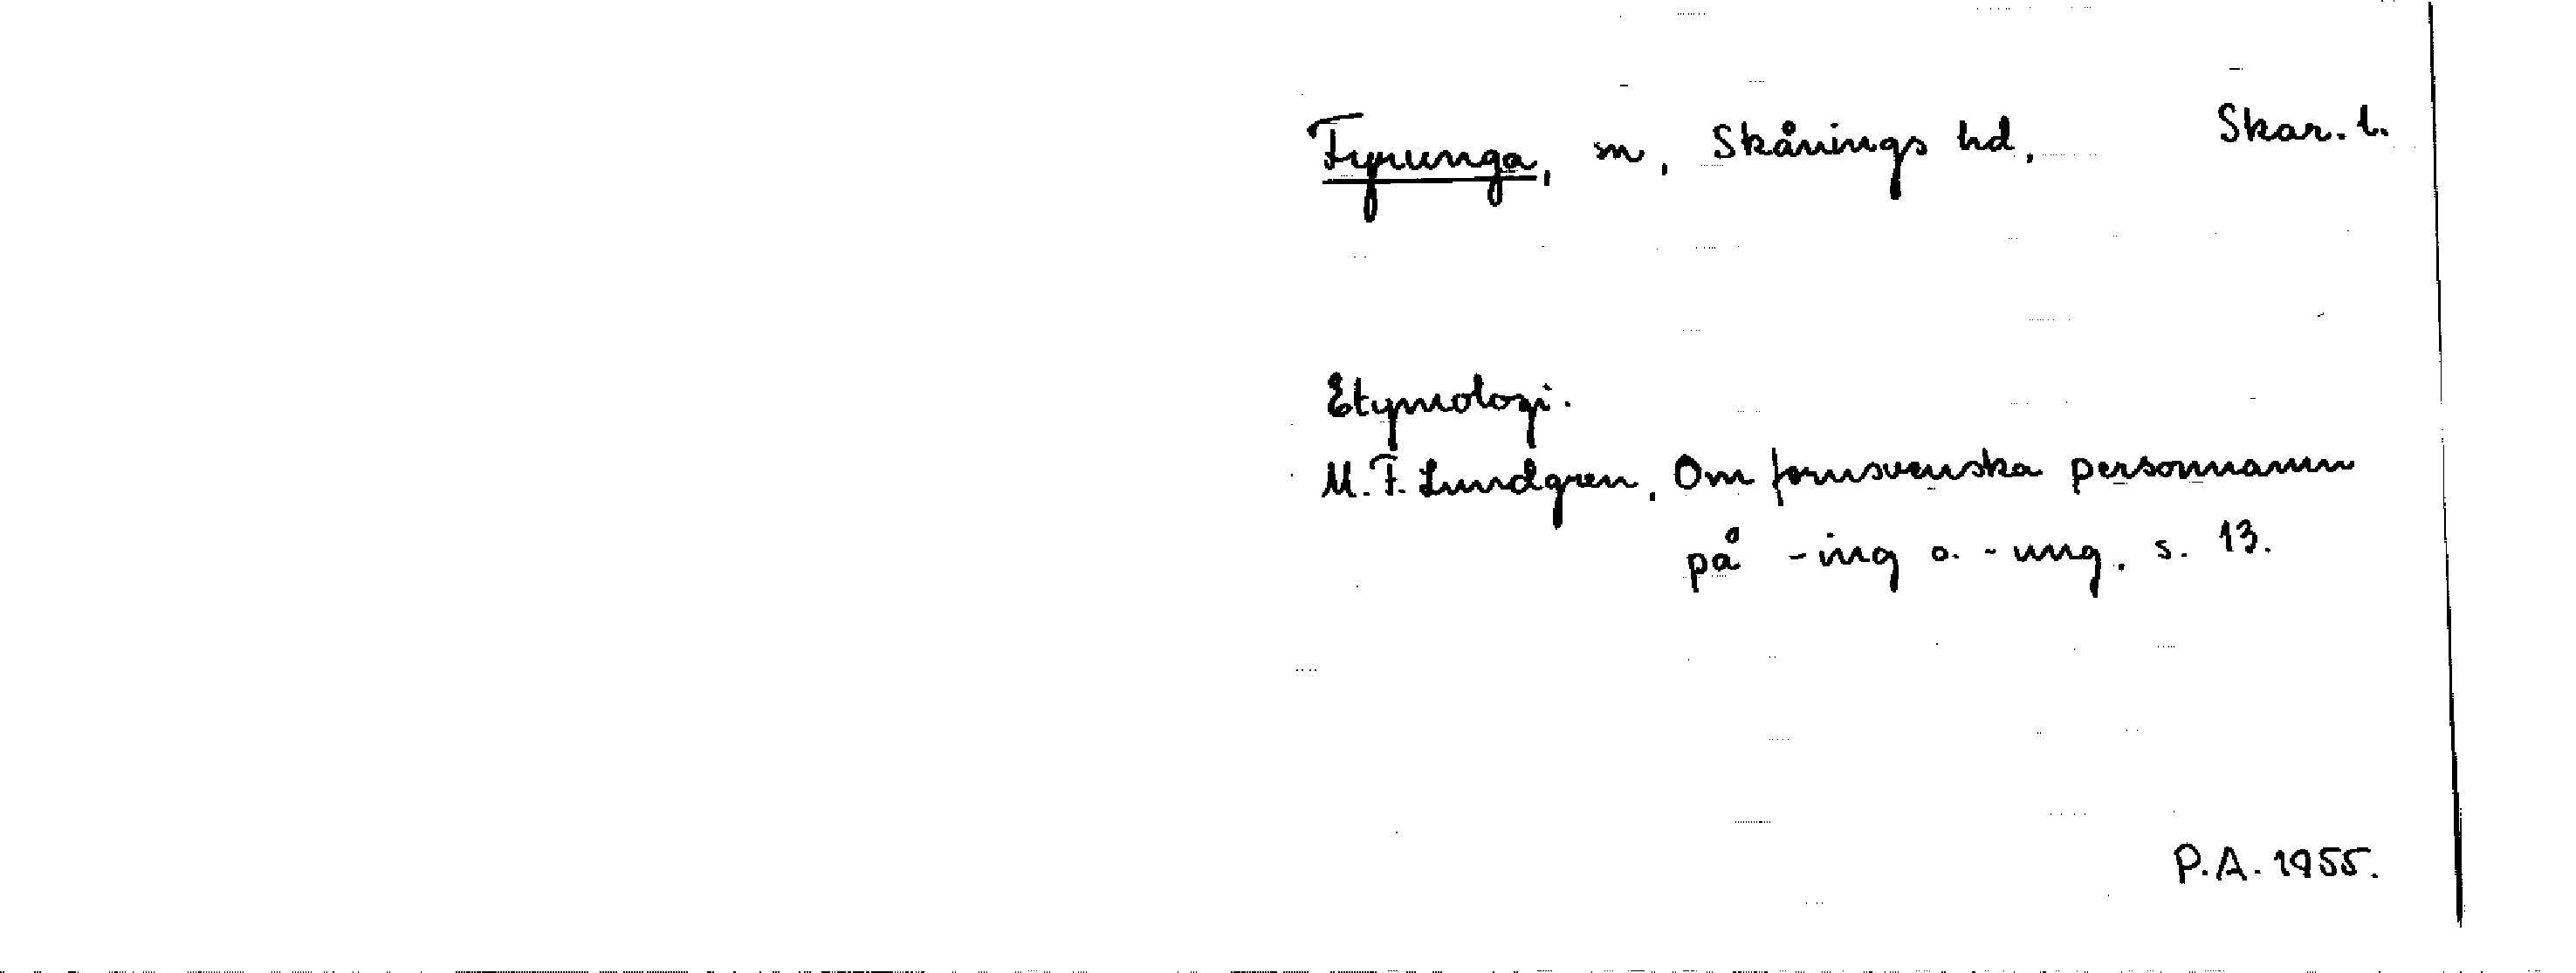 Fyrunga, sn, Skånings hd, Skar. l.
Etymologi.
M. F. Lundgren, Om fornsvenska personnamn
på -ing o. -ung. s. 13.
P.A. 1955.